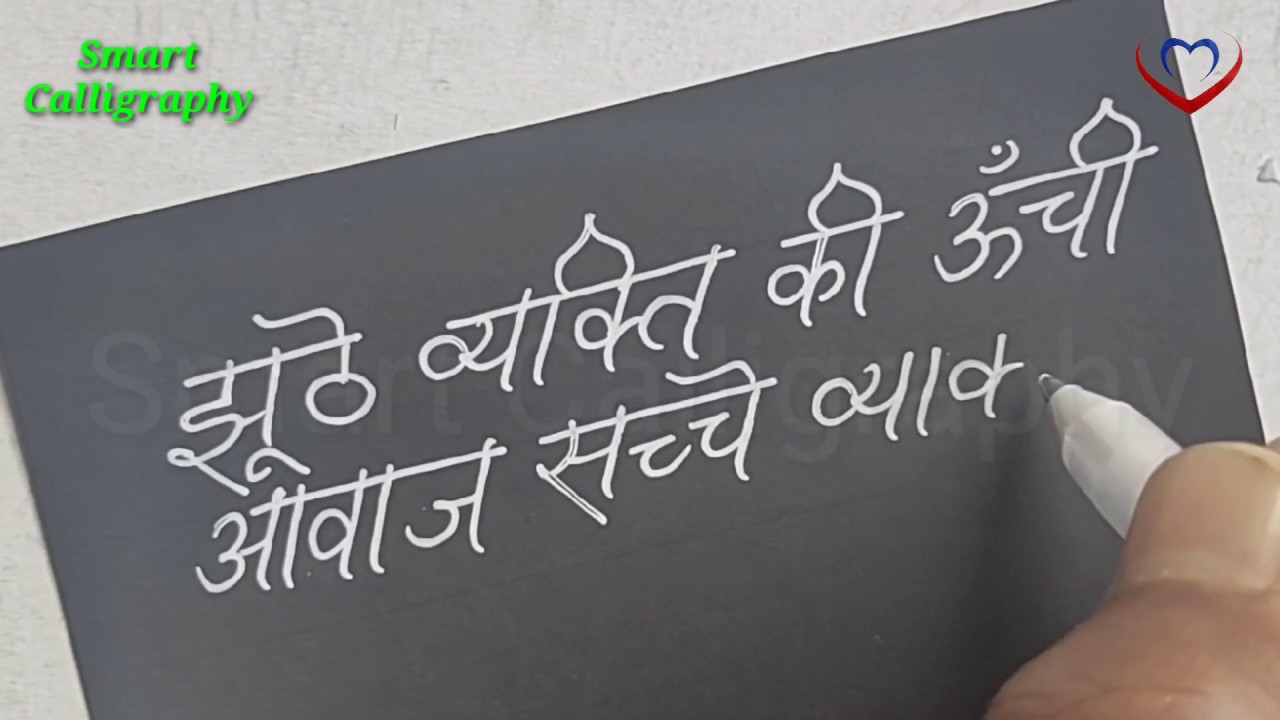 Smart
Calligraphy
झूठे व्यक्ति की ऊँची
आवाज सच्चे व्याक
Smart Calligraphy